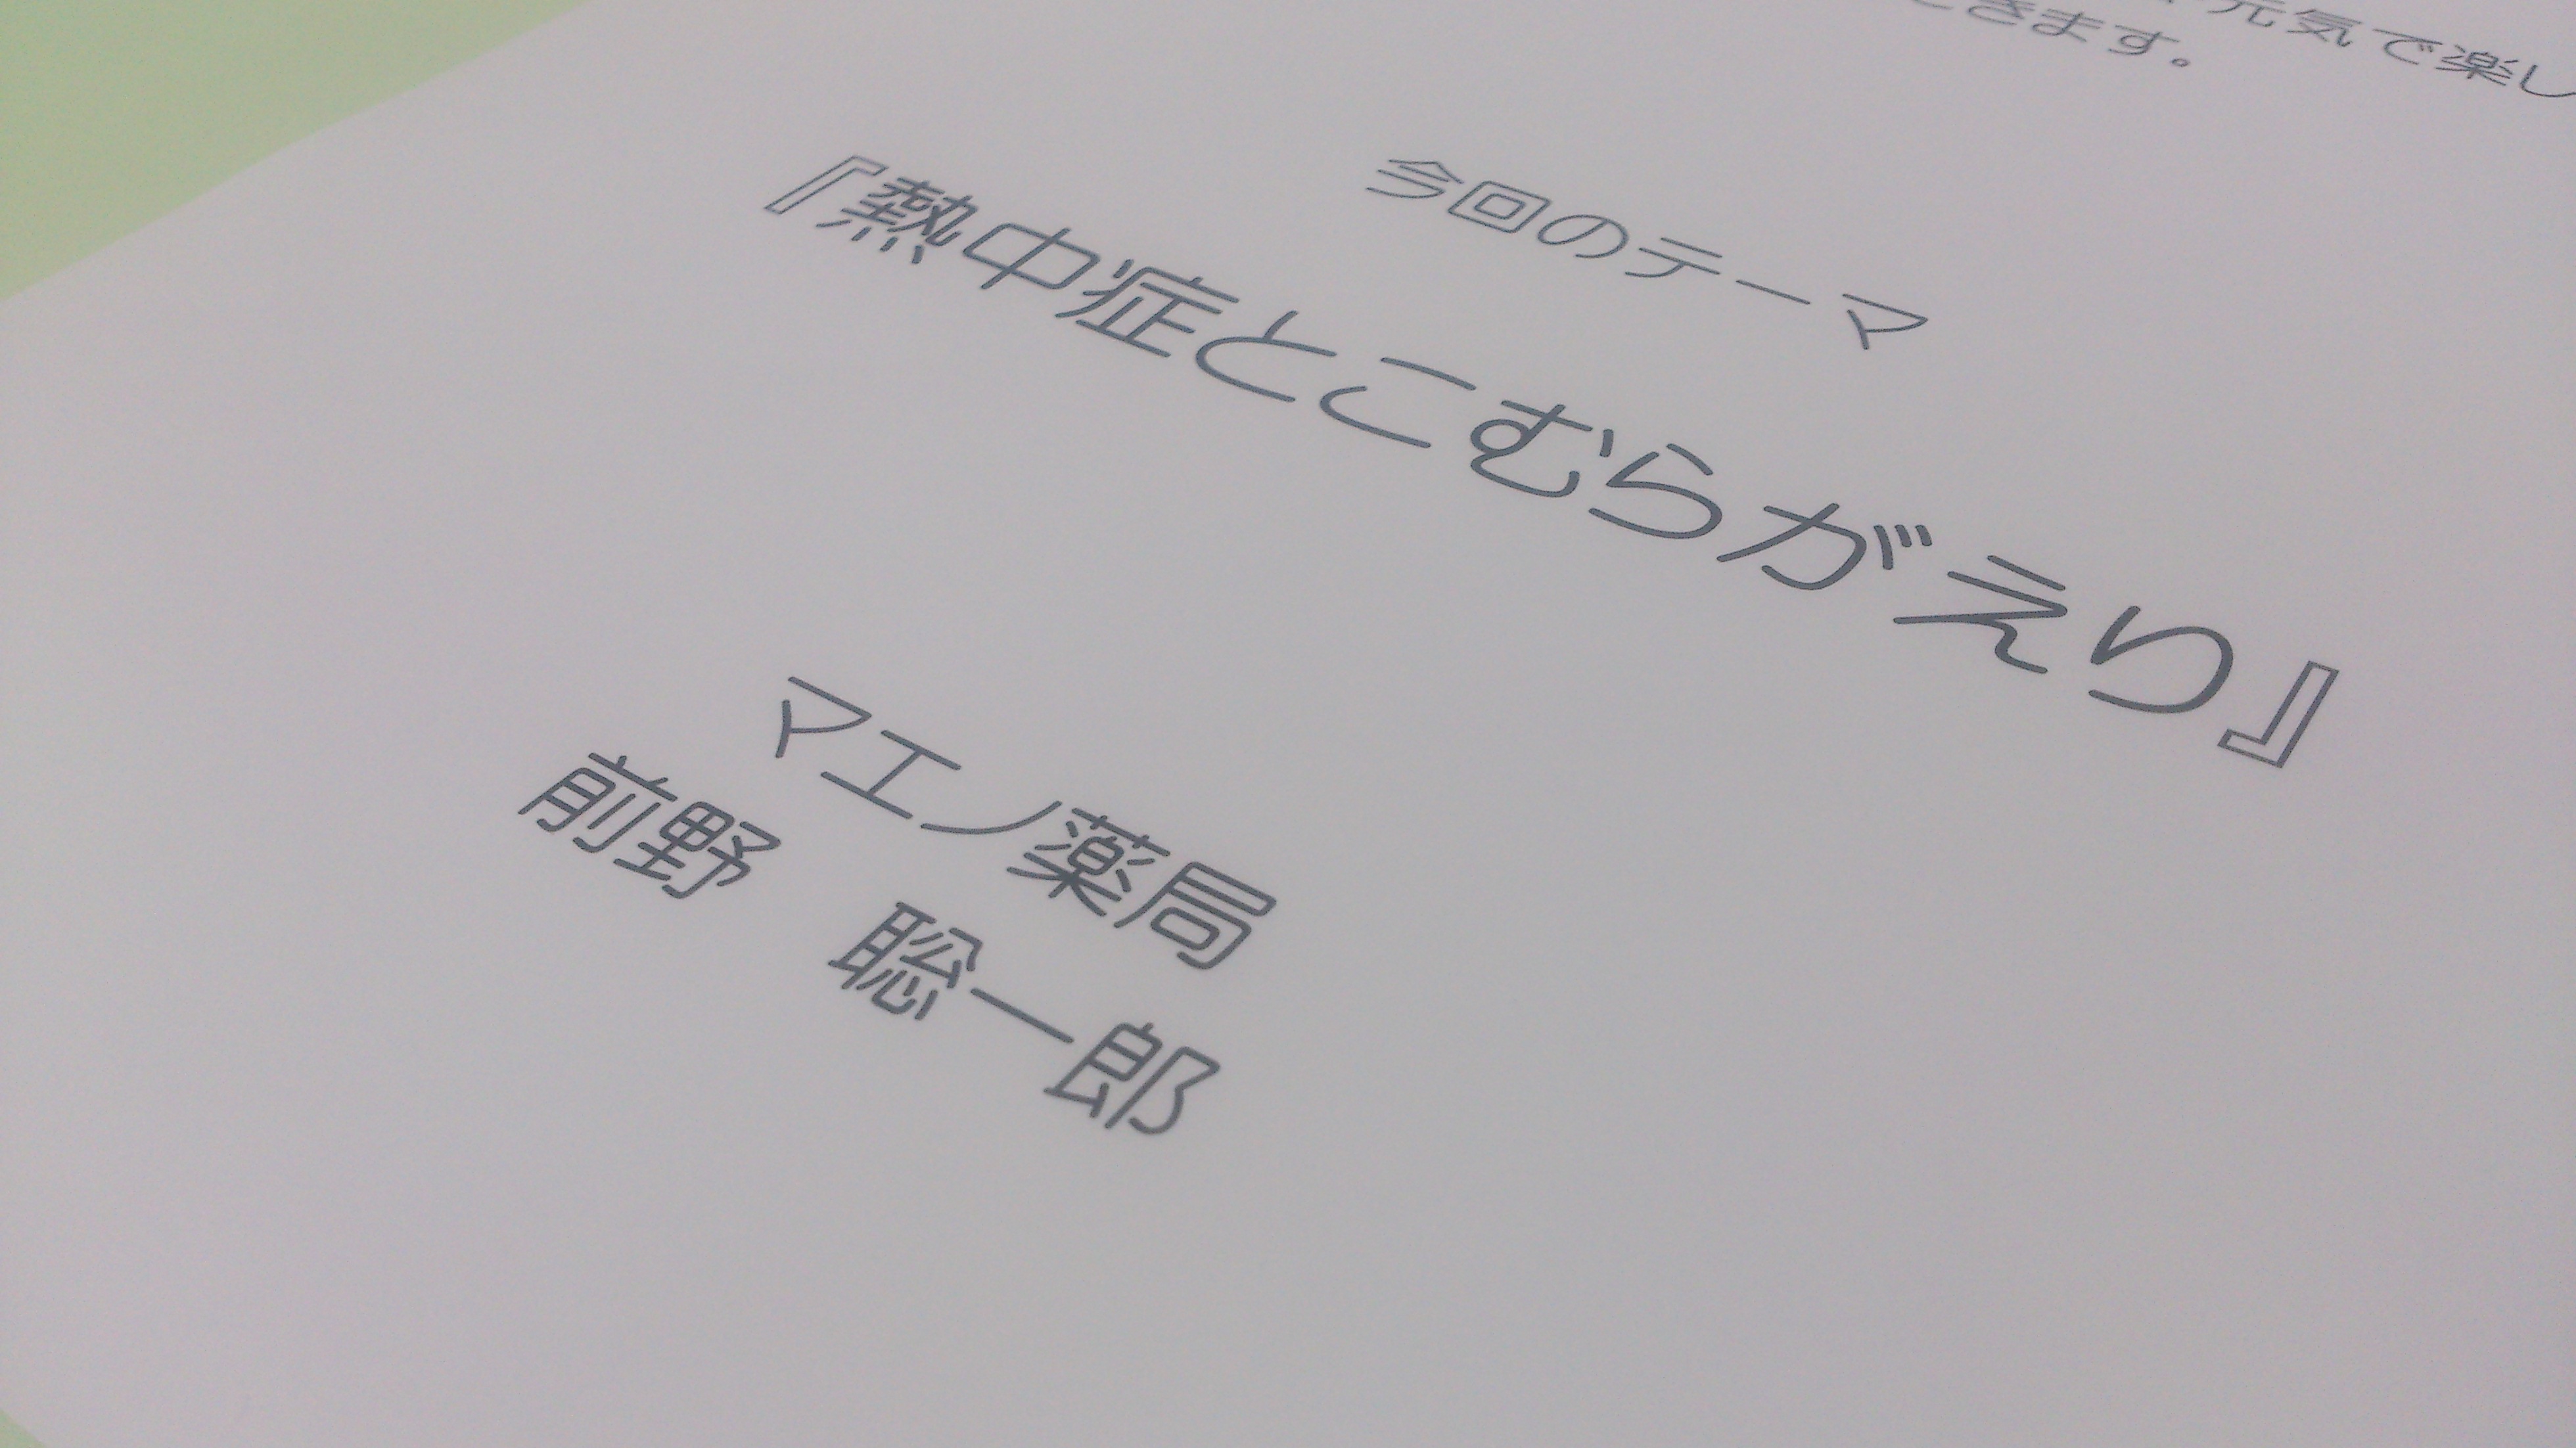 元気で楽し
きます。
今回のテーマ
『熱中症とこむらがえり』
マエノ薬局
前野　聡一郎